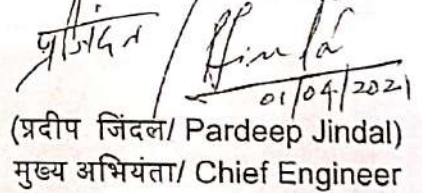 प्रजिंदल Jindal
01/04/2021
(प्रदीप जिंदल/ Pardeep Jindal)
मुख्य अभियंता/ Chief Engineer